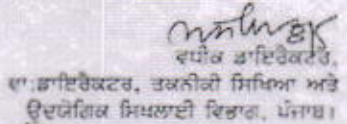 ਵਧੀਕ ਡਾਇਰੈਕਟਰ,
ਵਾ:ਡਾਇਰੈਕਟਰ, ਤਕਨੀਕੀ ਸਿਖਿਆ ਅਤੇ
ਉਦਯੋਗਿਕ ਸਿਖਲਾਈ ਵਿਭਾਗ, ਪੰਜਾਬ।